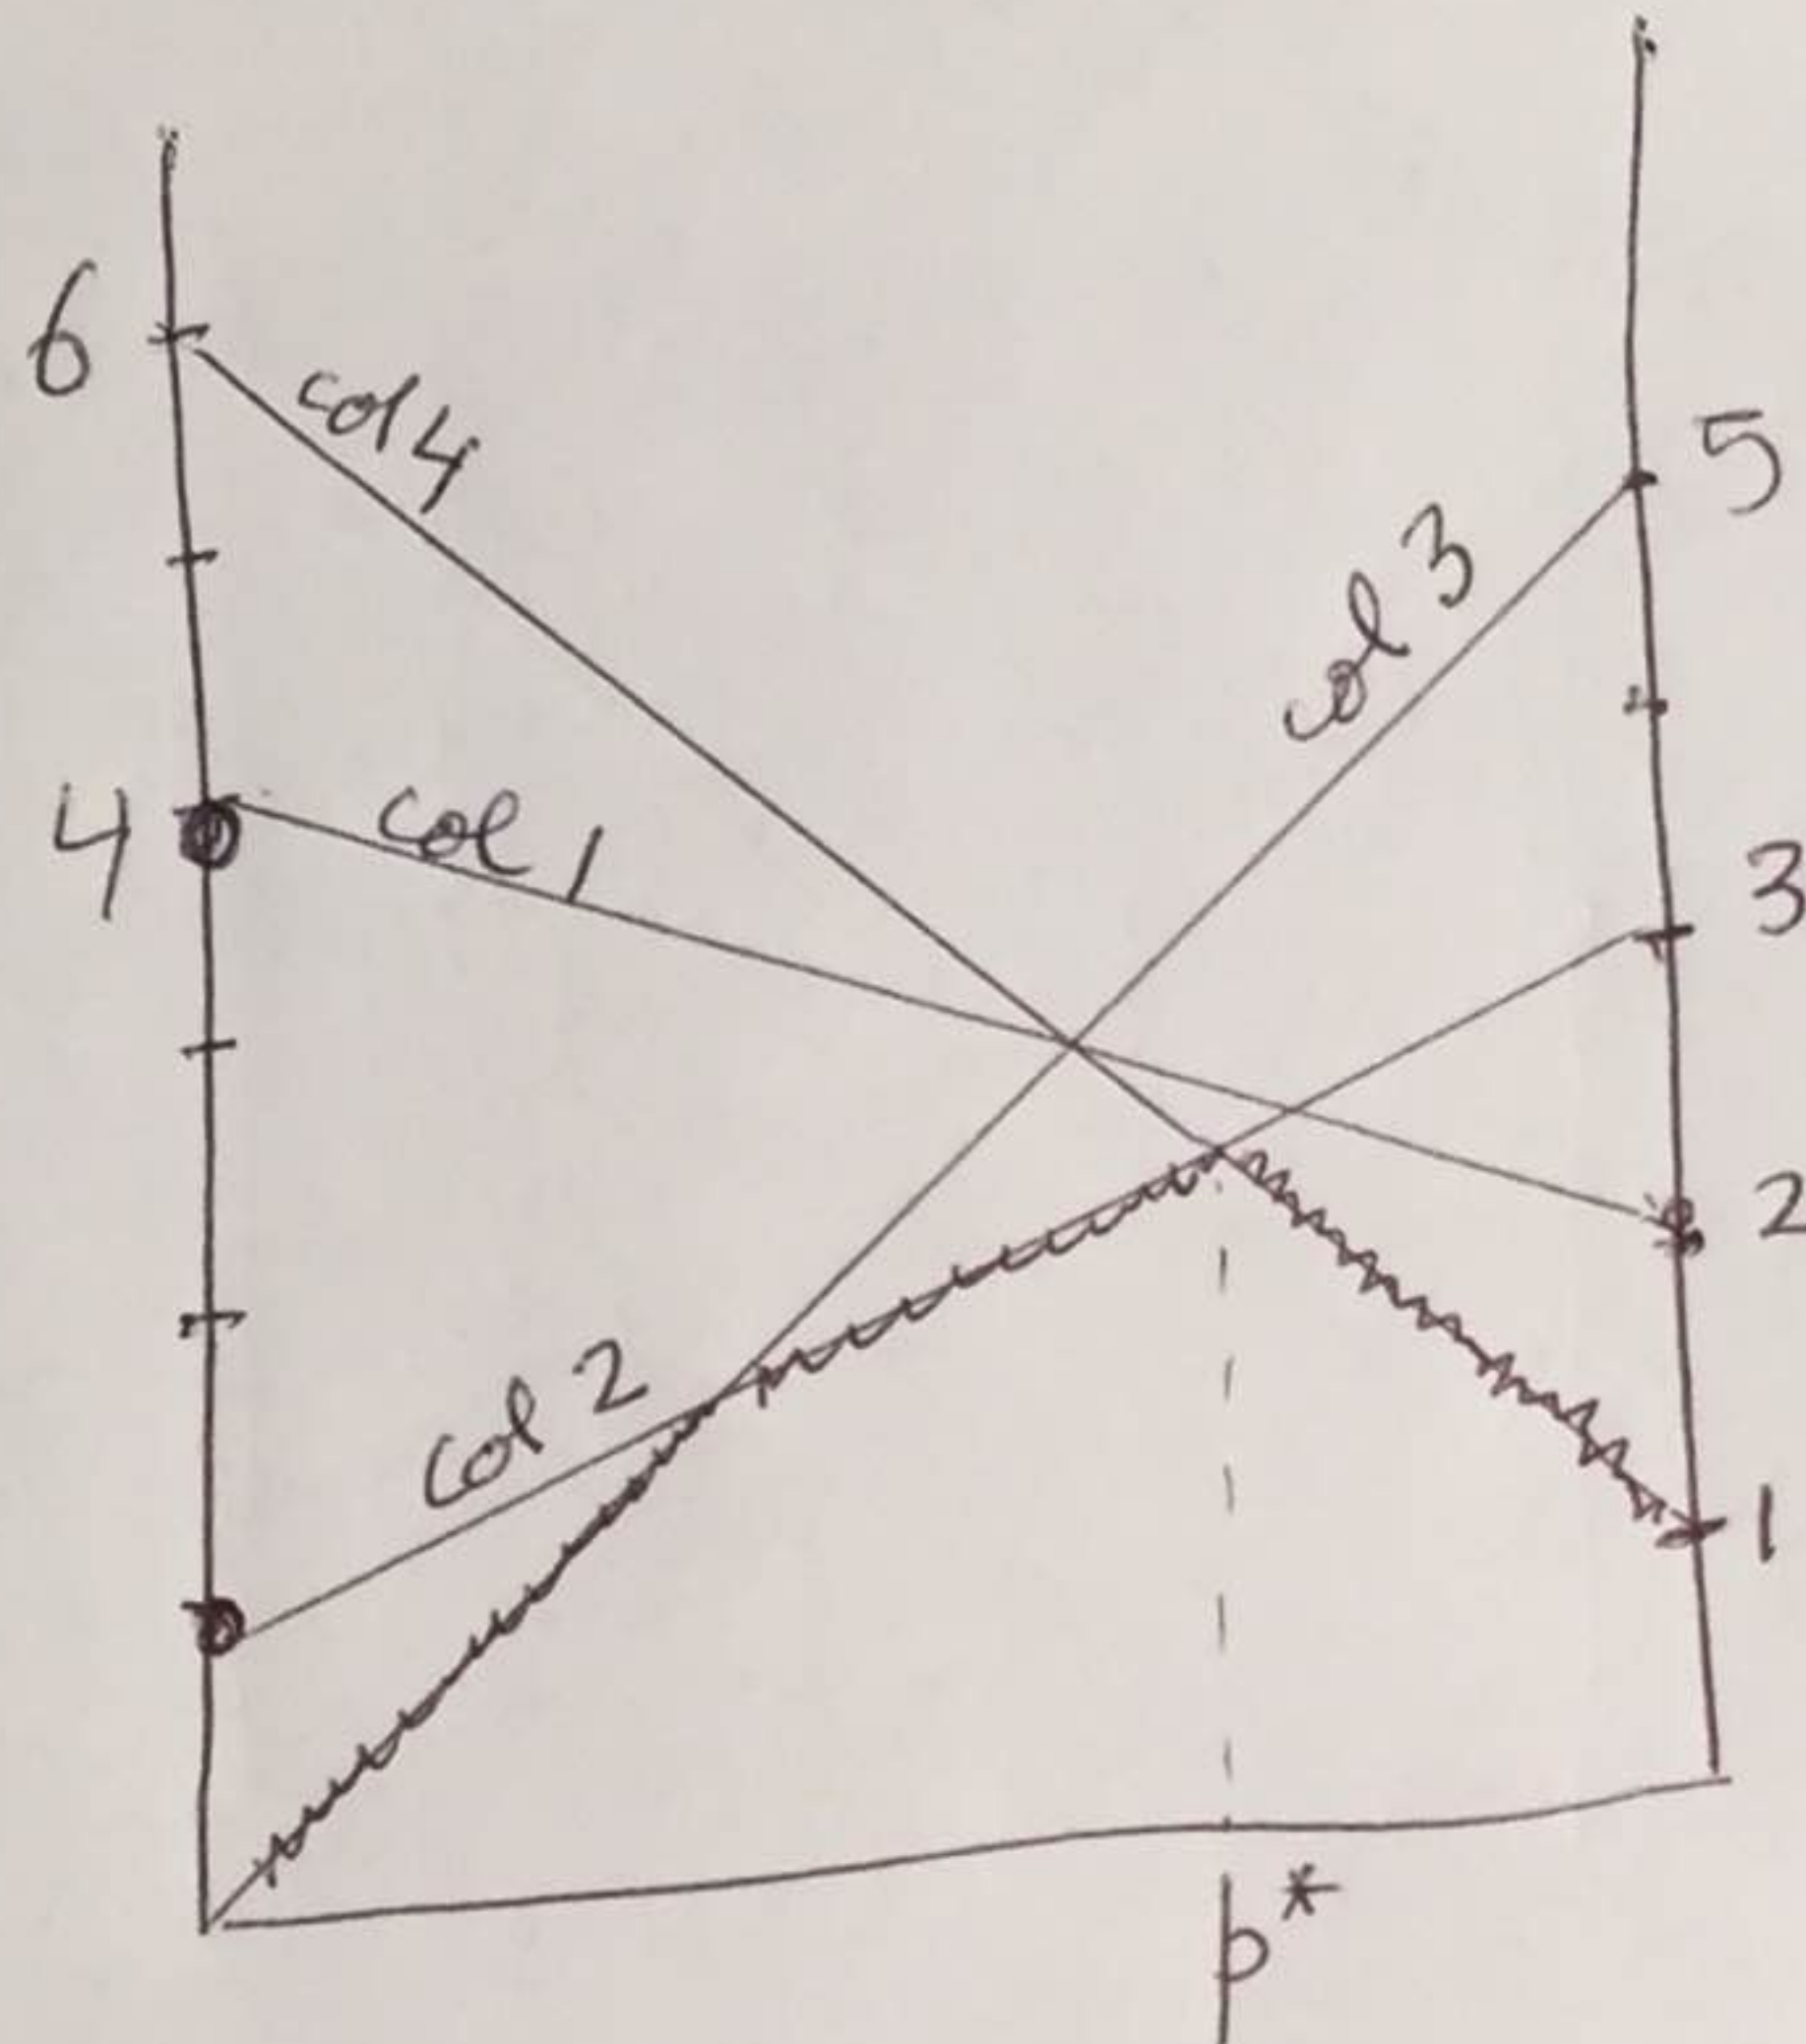 6
col 4
5
col 3
4
col 1
3
2
col 2
1
p*